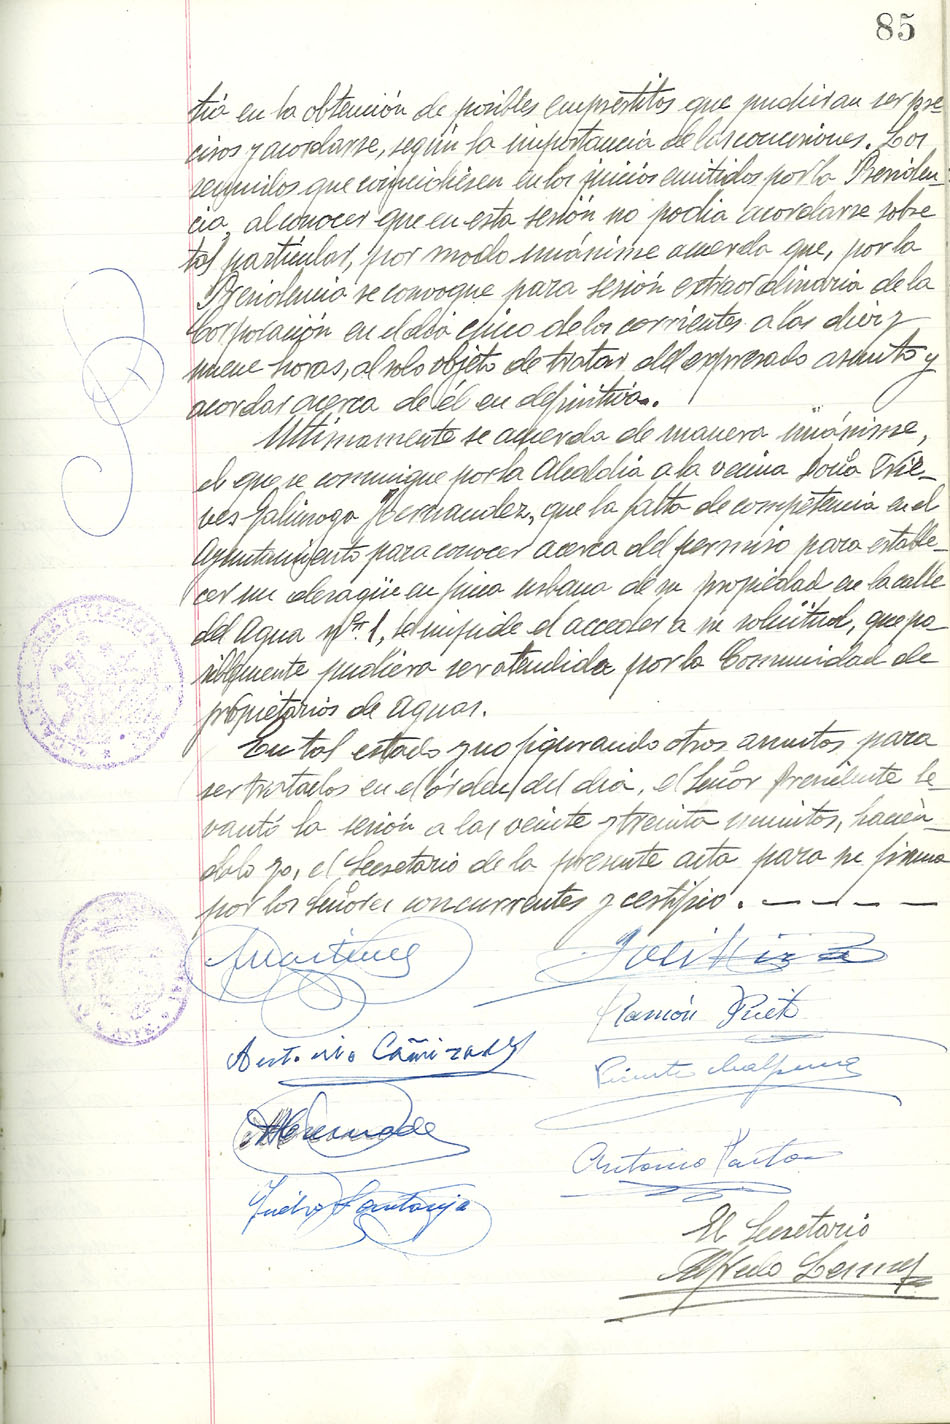 85
tiá en la obtención de posibles empréstitos que pudieran ser pre-
cisos y acordarse, según la importancia de las concesiones. Los
reunidos que coincidiesen en los juicios emitidos por la Presiden-
cia, al conocer que en esta sesión no podia acordarse sobre
tal particular, por modo unánime acuerda que, por la
Presidencia se convoque para sesión extraordinaria de la
Corporación en el día cinco de los corrientes a las diez y
nueve horas, al solo objeto de tratar del expresado asunto y
acordar acerca de él en definitiva.
Ultimamente se acuerda de manera unánime,
el que se comunique por la Alcaldia a la vecina Doña
Hernandez, que la falta de competencia en el
Ayuntamiento para conocer acerca del permiso para estable-
cer un desagüe en finca urbana de su propiedad en la calle
del Agua nº 1, le impide el acceder a su solicitud, que po
siblemente pudiera ser atendida por la Comunidad de
propietarios de Aguas.
En tal estado y no figurando otros asuntos para
ser tratados en el órden del dia, el Señor Presidente le-
vantó la sesión a las veinte y treinta minutos, hacien-
dolo yo, el Secretario de la presente acta para su firma
por los señores concurrentes y certifico. — — — —
Martinez
Ramón Prieto
Antonio Cañizares
Vicente
Antonio
Pedro Santonja
El Secretario
Alfredo